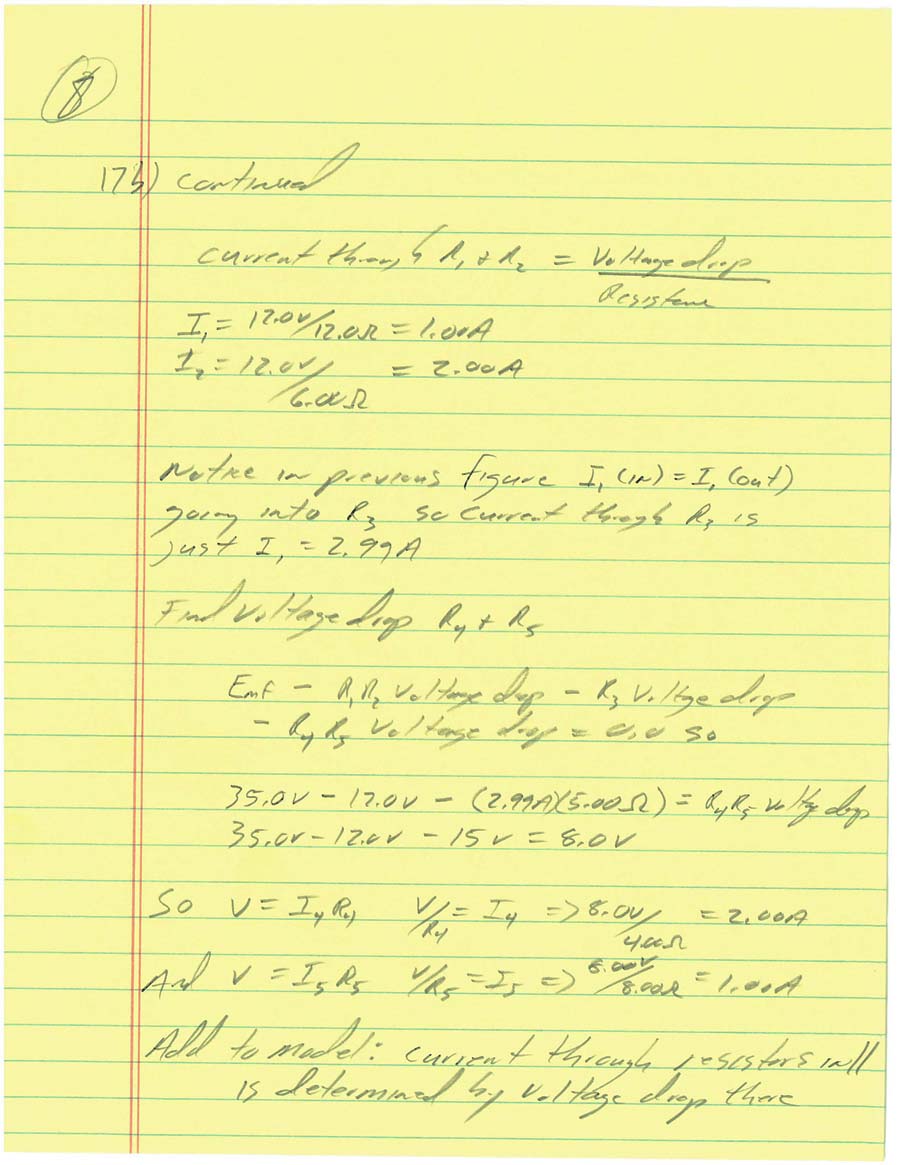 8
17b) continued
current through R₁ + R₂ = Voltage drop
Resistance
I₁ = 12.0V/12.0Ω = 1.00A
I₂ = 12.0V/6.00Ω = 2.00A
Notice in previous figure I, (in) = I, (out)
going into R₃ so current through R₃ is
just I, = 2.99A
Find voltage drop R₄ + R₅
Emf - R₁R₂ Voltage drop - R₃ Voltage drop
- R₄R₅ Voltage drop = 0.0 so
35.0V - 12.0V - (2.99A)(5.00Ω) = R₄R₅ voltage drop
35.0V - 12.0V - 15V = 8.0V
So V = I₄R₄ V/R₄ = I₄ => 8.0V/4.00Ω = 2.00A
And V = I₅R₅ V/R₅ = I₅ => 8.00V/8.00Ω = 1.00A
Add to model: current through resistors in ||
is determined by voltage drop there